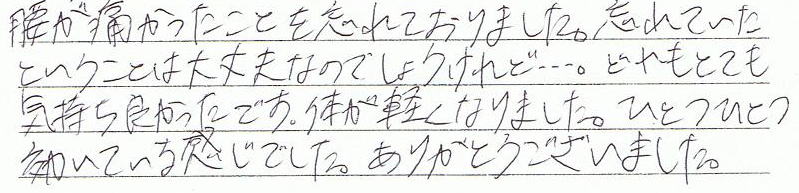 腰が痛かったことを忘れておりました。忘れていた
ということは大丈夫なのでしょうけれど…。どれもとても
気持ち良かったです。体が軽くなりました。ひとつひとつ
効いている感じでした。ありがとうございました。